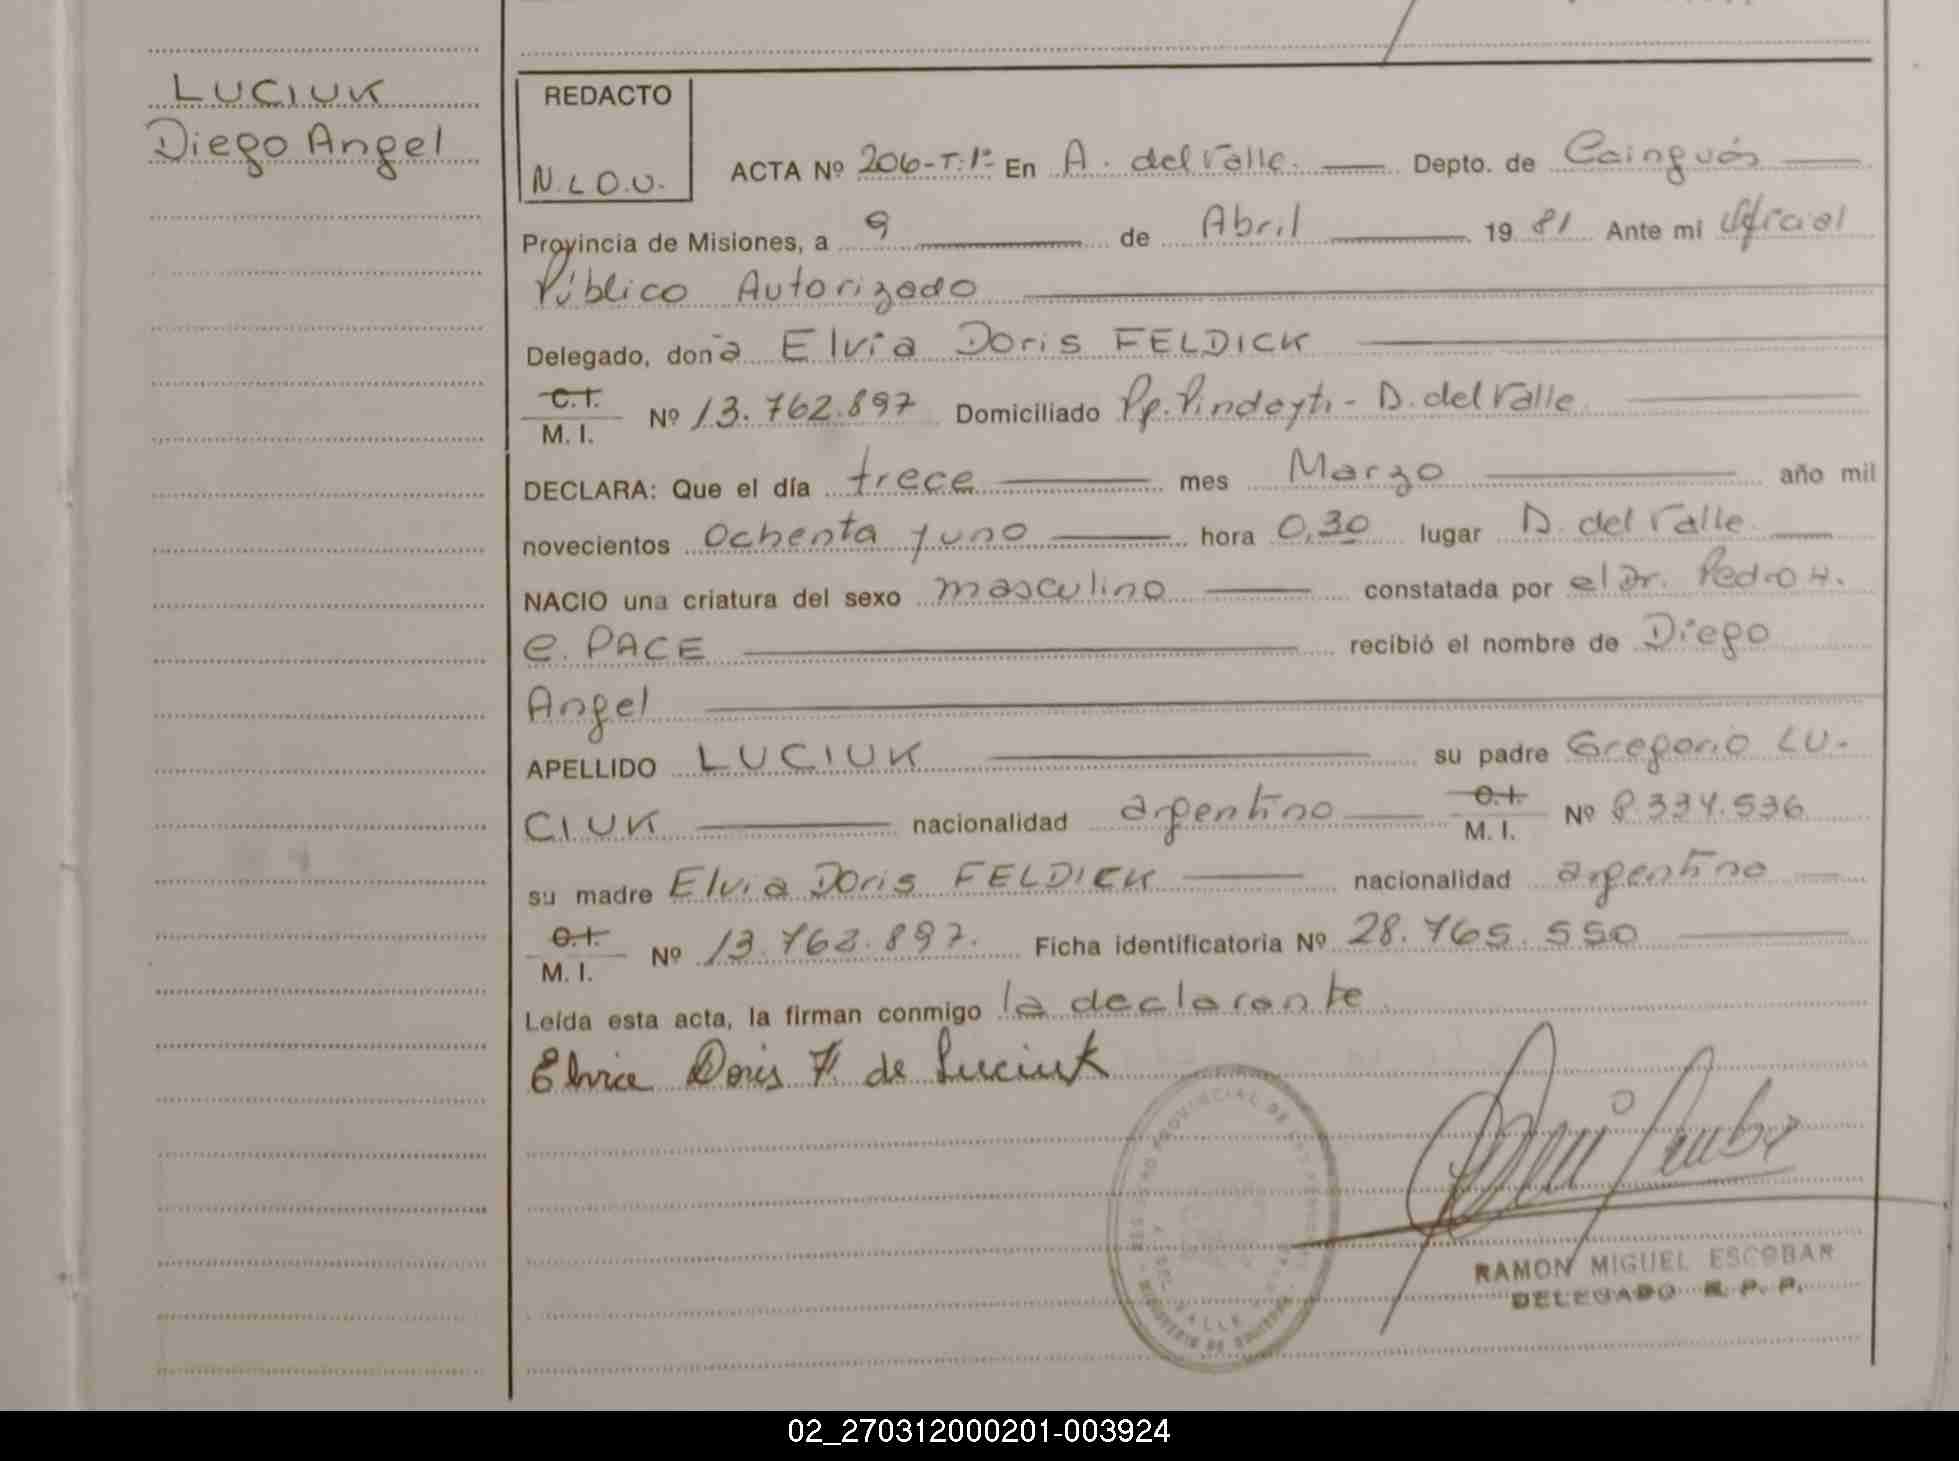 LUCIUK
Diego Angel
REDACTO
N.L.O.U.
ACTA Nº 206-T:1º En A. del Valle. Depto. de Cainguás
Provincia de Misiones, a 9 de Abril 1981 Ante mi Oficial
Público Autorizado
Delegado, doña Elvia Doris FELDICK
C.I.
M. I. Nº 13.762.897 Domiciliado Pp. Pindayti - A. del Valle
DECLARA: Que el día trece mes Marzo año mil
novecientos ochenta y uno hora 0,30 lugar A. del Valle
NACIO una criatura del sexo masculino constatada por el Dr. Pedro H.
C. PACE recibió el nombre de Diego
Angel
APELLIDO LUCIUK su padre Gregorio LU-
CIUK nacionalidad argentino C.I.
M. I. Nº 8.334.536
su madre Elvia Doris FELDICK nacionalidad argentina
C.I.
M. I. Nº 13.762.897. Ficha identificatoria Nº 28.765.550
Leída esta acta, la firman conmigo la declarante
Elvia Doris F. de Luciuk
REGISTRO PROVINCIAL DE LAS PERSONAS
A. DEL VALLE
MINISTERIO DE GOBIERNO
RAMON MIGUEL ESCOBAR
DELEGADO R. P. P.
02_270312000201-003924